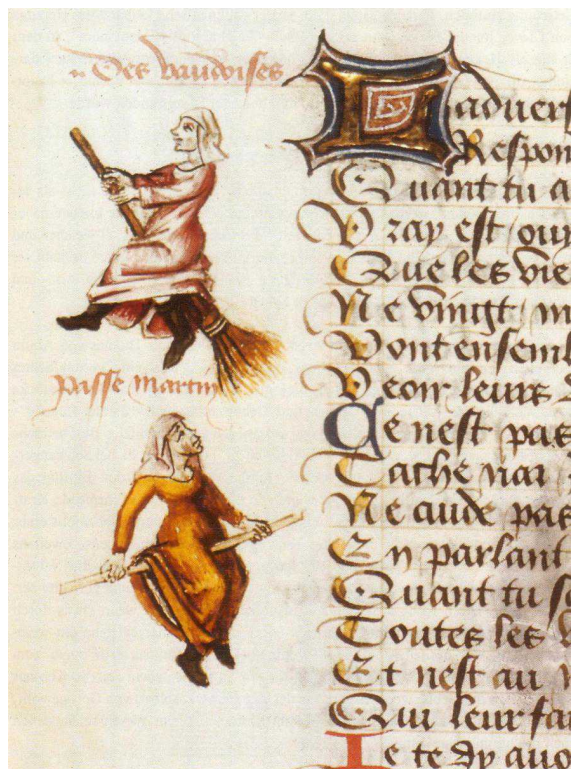 Des vaudoises
passe martin
Laduers
Respon
Quant tu a
Vray est ouy
Que les vie
Ne vingt
Vont ensembl
Veoir leurs
Ce nest pas
Tache
Ne cuide pas
En parlant
Quant tu
Toutes les
Et nest au
Qui leur fai
Je te dy auo